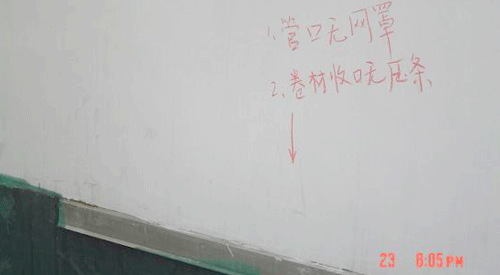 1、管口无网罩
2、卷材收口无压条
23 6:05 PM